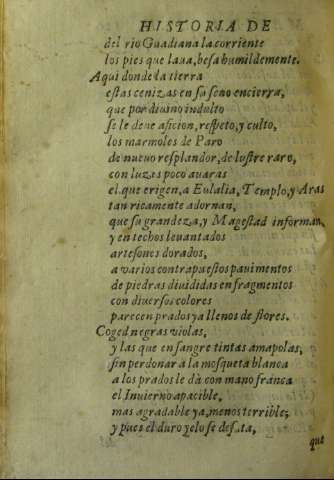 HISTORIA DE
del rio Guadiana la corriente
los pies que laua, besa humildemente.
Aqui donde la tierra
estas cenizas en su seno encierra,
que por diuino indulto
se le deue aficion, respeto, y culto,
los marmoles de Paro
de nueuo resplandor, de lustre raro,
con luzes poco auaras
el que erigen, a Eulalia, Templo, y Aras
tan ricamente adornan,
que su grandeza, y Magestad informan,
y en techos leuantados
artesones dorados,
a varios contrapuestos pauimentos
de piedras diuididas en fragmentos
con diuersos colores
parecen prados ya llenos de flores.
Coged negras violas,
y las que en sangre tintas amapolas,
sin perdonar a la mosqueta blanca
a los prados le dà con mano franca
el Inuierno apacible,
mas agradable ya, menos terrible;
y pues el duro yelo se desata,
que